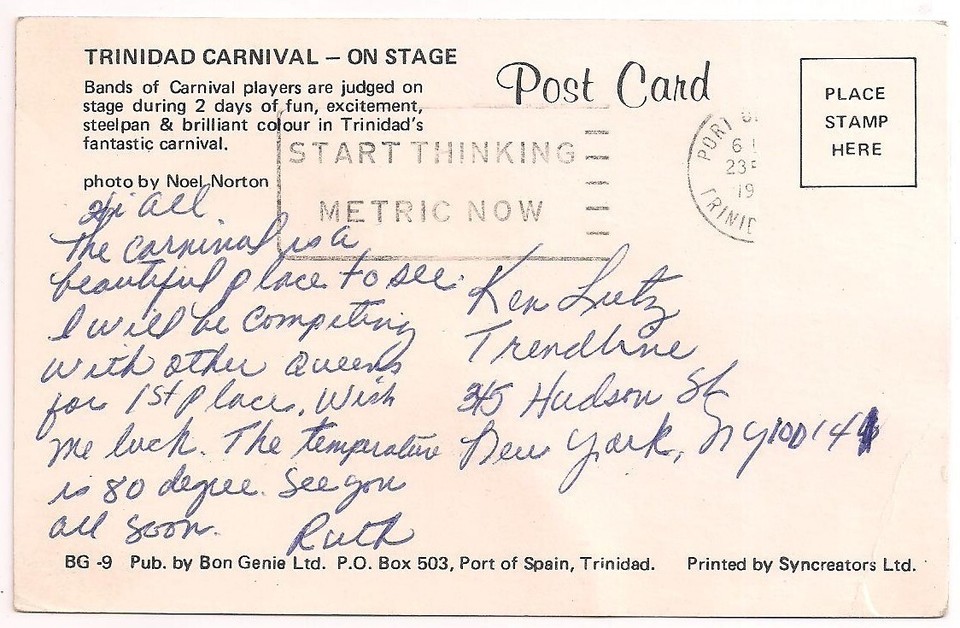 TRINIDAD CARNIVAL – ON STAGE
Bands of Carnival players are judged on
stage during 2 days of fun, excitement,
steelpan & brilliant colour in Trinidad's
fantastic carnival.
photo by Noel Norton
Post Card
PLACE
STAMP
HERE
START THINKING
METRIC NOW
PORT
6
23
19
TRINID
Hi all.
The carnival is a
beautiful place to see.
I will be competing
with other Queens
for 1st place. Wish
me luck. The temperature
is 80 degree. See you
all soon.
Ruth
Ken Lutz
Trendline
345 Hudson St
New York, NY 10014
BG -9 Pub. by Bon Genie Ltd. P.O. Box 503, Port of Spain, Trinidad. Printed by Syncreators Ltd.